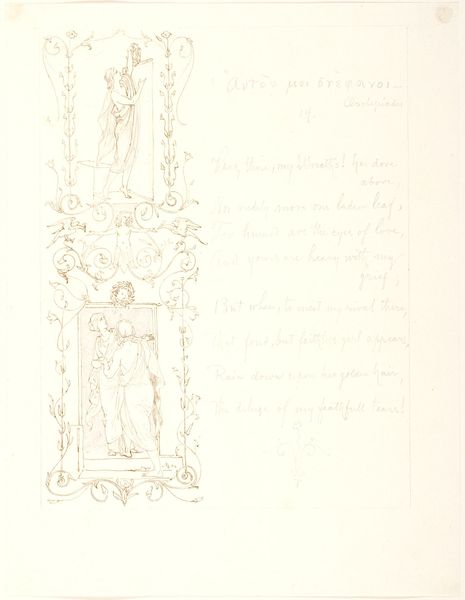 "Αυτοῦ μοι στέφανοι —
Asclepiades
14.
Hang there, my Wreaths! her door
above,
Nor rudely move one laden leaf,
Too humid are the eyes of love,
And you are heavy with my
grief,
But when, to meet my rival there,
That fond, but faithless girl appears,
Rain down upon his golden hair,
The deluge of my faithfull tears!